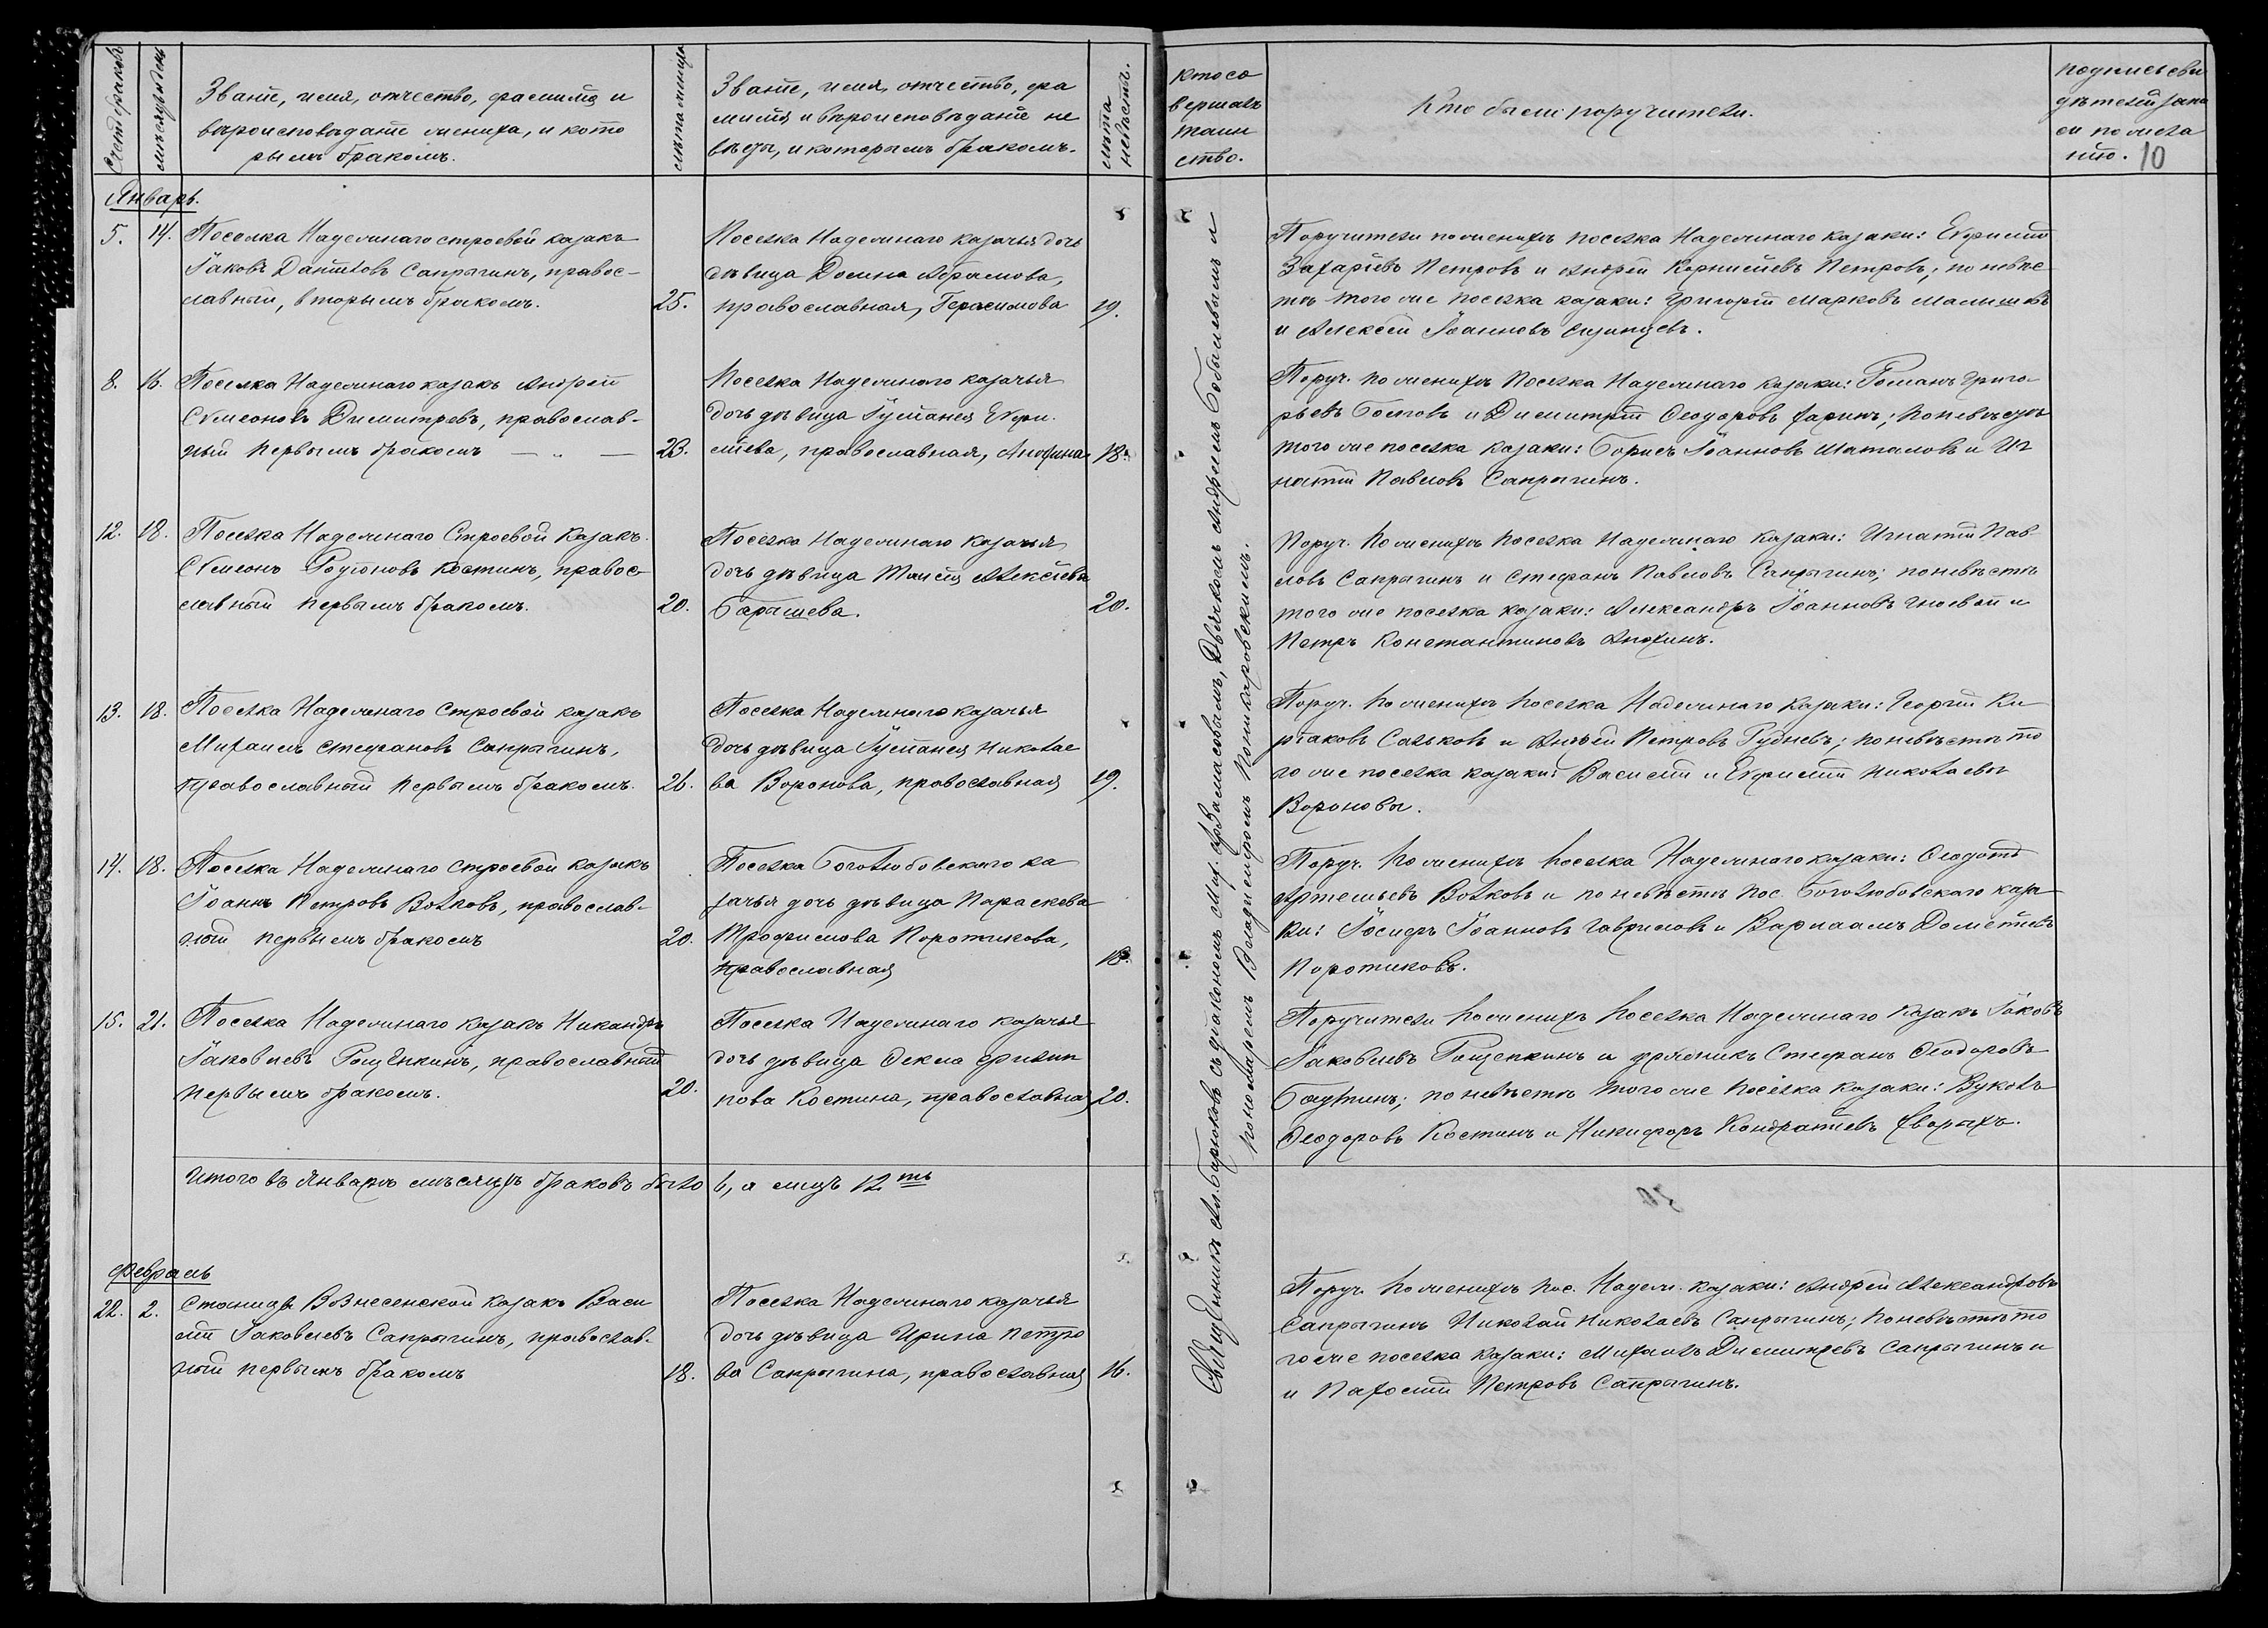 Счетъ браковъ
мѣсяцъ и день
Званіе, имя, отчество, фамилія и
вѣроисповѣданіе жениха, и кото
рымъ бракомъ.
лѣта жениха
Званіе, имя, отчество, фа
милія и вѣроисповѣданіе не
вѣсты, и которымъ бракомъ.
лѣта
невѣсты.
Кто со
вершалъ
таин
ство.
Кто были поручители.
подпись сви
дѣтелей запи
си по жела
нію. 10
Январь.
5. 14. Поселка Надежнаго строевой казакъ
Іаковъ Даніиловъ Сапрыгинъ, правос-
лавный, вторымъ бракомъ. 25.
Поселка Надежнаго казачья дочь
дѣвица Домна Абрамова,
православная, Герасимова 19.
Поручители по женихѣ поселка Надежнаго казаки: Ефимій
Захаріевъ Петровъ и Андрей Корниліевъ Петровъ; по невѣс
тѣ того же поселка казаки: Григорій Марковъ Малышевъ
и Алексѣй Іоанновъ
8. 16. Поселка Надежнаго казакъ Андрей
Сѵмеоновъ Димитревъ, православ-
ный первымъ бракомъ — „ — 23.
Поселка Надежнаго казачья
дочь дѣвица Іуліанія Ефи.
міева, православная, Анохина 18.
Поруч. по женихѣ поселка Надежнаго казаки: Романъ Григо-
рьевъ и Димитрій Ѳеодоровъ Ларинъ; по невѣстѣ
того же поселка казаки: Борисъ Іоанновъ Шаталовъ и Иг
натій Павловъ Сапрыгинъ.
12. 18. Поселка Надежнаго Строевой казакъ
Сѵмеонъ Родіоновъ Костинъ, правос-
лавный первымъ бракомъ. 20.
Поселка Надежнаго казачья
дочь дѣвица Таисія Алексѣева
Барышева. 20.
Поруч. по женихѣ поселка Надежнаго казаки: Игнатій Пав-
ловъ Сапрыгинъ и Стефанъ Павловъ Сапрыгинъ; по невѣстѣ
того же поселка казаки: Александръ Іоанновъ Гноевой и
Петръ Константиновъ Анохинъ.
13. 18. Поселка Надежнаго Строевой казакъ
Михаилъ Стефановъ Сапрыгинъ,
православный первымъ бракомъ. 26.
Поселка Надежнаго казачья
дочь дѣвица Іуліанія Николае
ва Воронова, православная 19.
Поруч. по женихѣ поселка Надежнаго казаки: Георгій Ки
ріаковъ Сальковъ и Андрей Петровъ Рудневъ; по невѣстѣ то
го же поселка казаки: Василій и Ефимій Николаевы
Вороновы.
14. 18. Поселка Надежнаго Строевой казакъ
Іоаннъ Петровъ Волковъ, православ-
ный первымъ бракомъ 20.
Поселка Боголюбовскаго ка
зачья дочь дѣвица Параскева
Трофимова Поротикова, 18.
православная
Поруч. по женихѣ поселка Надежнаго казаки: Ѳеодотъ
Артемьевъ Волковъ и по невѣстѣ пос. Боголюбовскаго каза
ки: Іосифъ Іоанновъ Гавриловъ и Варлаамъ Дометіевъ
Поротиковъ.
15. 21. Поселка Надежнаго казакъ Никандръ
Іаковлевъ Рощепкинъ, православный
первымъ бракомъ. 20.
Поселка Надежнаго казачья
дочь дѣвица Ѳекла Филип
пова Костина, православная 20.
Поручители по женихѣ поселка Надежнаго казакъ Іаковъ
Іаковлевъ Рощепкинъ и урядникъ Стефанъ Ѳеодоровъ
Баутинъ; по невѣстѣ того же поселка казаки: Вуколъ
Ѳеодоровъ Костинъ и Никифоръ Кондратіевъ
Итого въ Январѣ мѣсяцѣ браковъ было 6, а лицъ 12ть
Февраль
22. 2. Станицы Вознесенской казакъ Васи
лій Іаковлевъ Сапрыгинъ, православ-
ный первымъ бракомъ 18.
Поселка Надежнаго казачья
дочь дѣвица Ирина Петро
ва Сапрыгина, православная 16.
Поруч. по женихѣ пос. Надеж. казаки: Андрей Александровъ
Сапрыгинъ Николай Николаевъ Сапрыгинъ; по невѣстѣ то
го же поселка казаки: Михаилъ Димитревъ Сапрыгинъ и
и Пахомій Петровъ Сапрыгинъ.
Священникъ Ал. Бароковъ съ діакономъ Дьячкомъ Андреемъ Бобылевымъ и
пономаремъ Владиміромъ Поликарповскимъ.